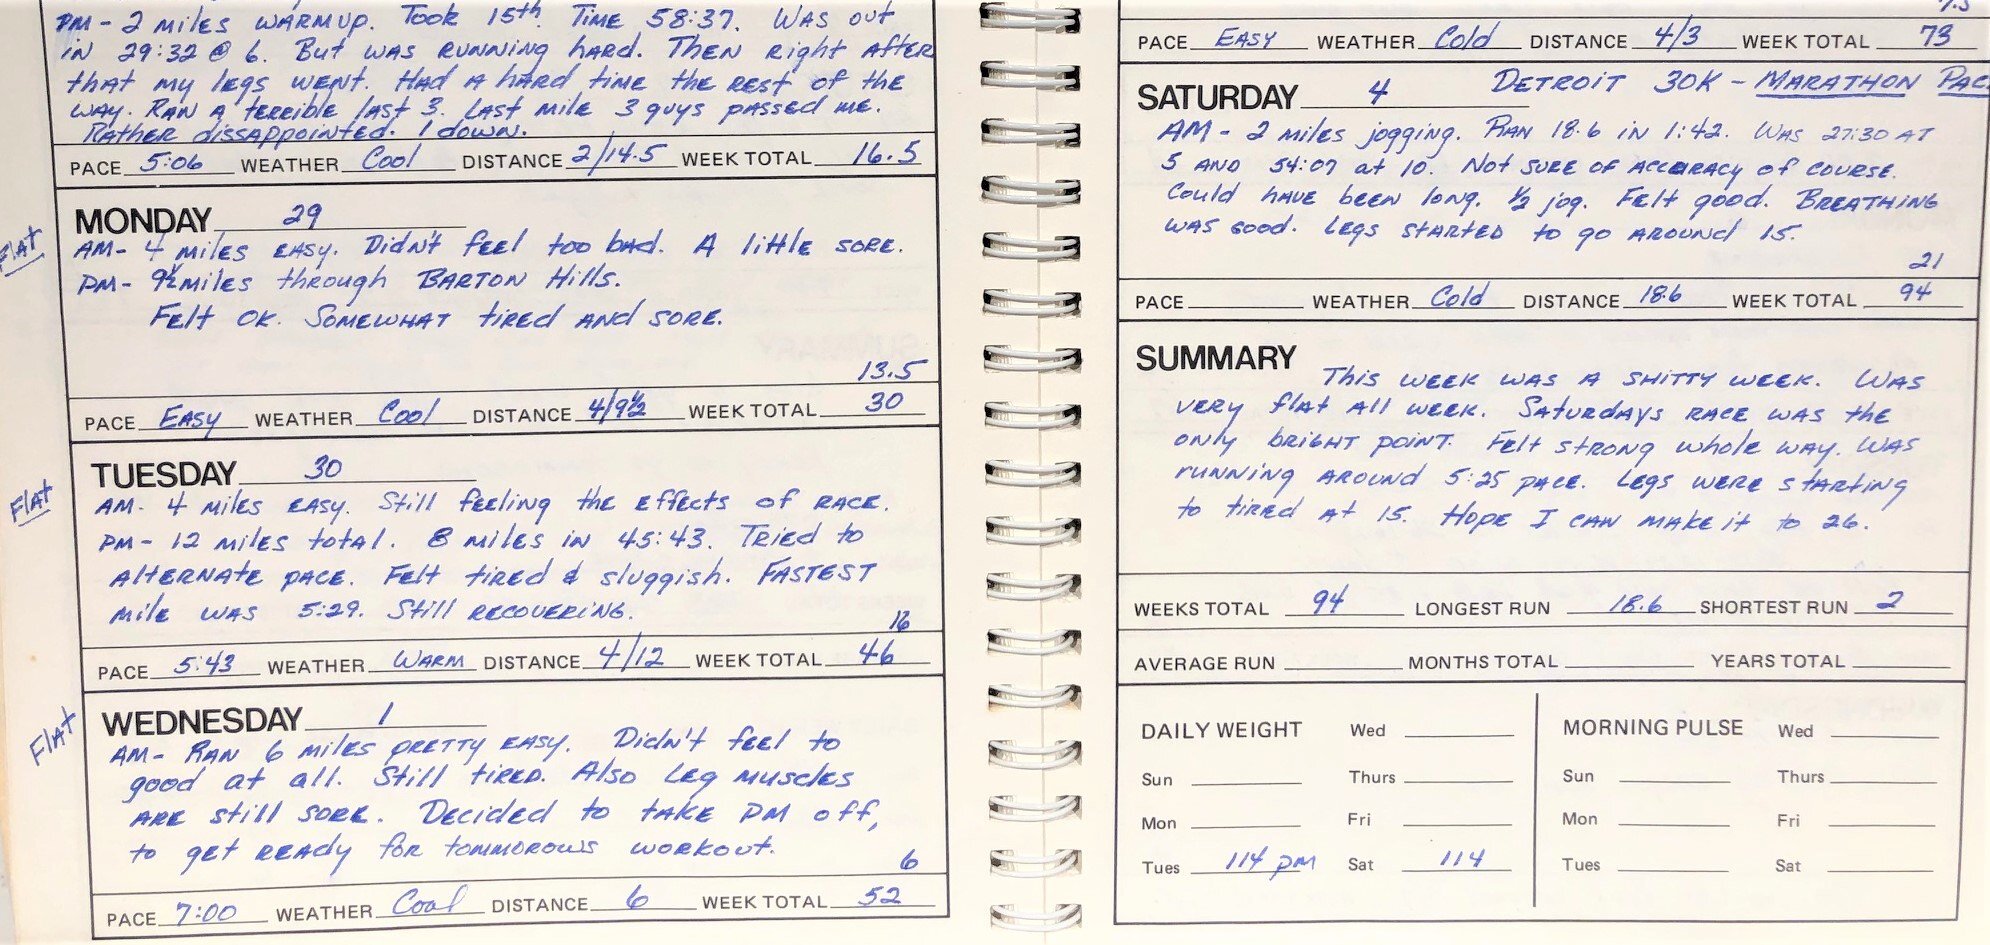 PM- 2 miles WARMUP. Took 15th. Time 58:37. WAS out
in 29:32 @ 6. But was RUNNING hard. Then right After
that my legs went. Had A hard time the rest of the
way. Ran A terrible last 3. Last mile 3 guys passed me.
Rather dissappointed. 1 down.
PACE 5:06 WEATHER Cool DISTANCE 2/14.5 WEEK TOTAL 16.5
Flat
MONDAY 29
AM- 4 miles EASY. Didn't feel too bad. A little sore.
PM- 9½ miles through BARTON Hills.
Felt OK. Somewhat tired AND SORE.
13.5
PACE EASY WEATHER Cool DISTANCE 4/9½ WEEK TOTAL 30
Flat
TUESDAY 30
AM- 4 miles EASY. Still feeling the effects of RACE.
PM- 12 miles total. 8 miles in 45:43. Tried to
Alternate pace. Felt tired & sluggish. FASTEST
mile was 5:29. Still RECOVERING.
16
PACE 5:43 WEATHER WARM DISTANCE 4/12 WEEK TOTAL 46
Flat
WEDNESDAY 1
AM- RAN 6 miles PRETTY EASY. Didn't feel to
good at all. Still tired. Also Leg muscles
ARE still SORE. Decided to take PM off,
to get READY for tommorows workout.
6
PACE 7:00 WEATHER Cool DISTANCE 6 WEEK TOTAL 52
7.5
PACE EASY WEATHER Cold DISTANCE 4/3 WEEK TOTAL 73
SATURDAY 4 DETROIT 30K - MARATHON PAC
AM- 2 miles jogging. RAN 18.6 in 1:42. Was 27:30 AT
5 AND 54:07 at 10. Not SURE OF ACCURACY of COURSE.
Could have been long. ½ jog. Felt good. BREATHING
WAS GOOD. Legs STARTED to go AROUND 15.
21
PACE WEATHER Cold DISTANCE 18.6 WEEK TOTAL 94
SUMMARY
This week was A SHITTY WEEK. WAS
very flat All week. Saturdays RACE was the
only BRIGHT POINT. Felt STRONG whole way. WAS
running AROUND 5:25 pace. Legs were starting
to tired at 15. Hope I CAN MAKE it to 26.
WEEKS TOTAL 94 LONGEST RUN 18.6 SHORTEST RUN 2
AVERAGE RUN MONTHS TOTAL YEARS TOTAL
DAILY WEIGHT Wed
Sun Thurs
Mon Fri
Tues 114 PM Sat 114
MORNING PULSE Wed
Sun Thurs
Mon Fri
Tues Sat